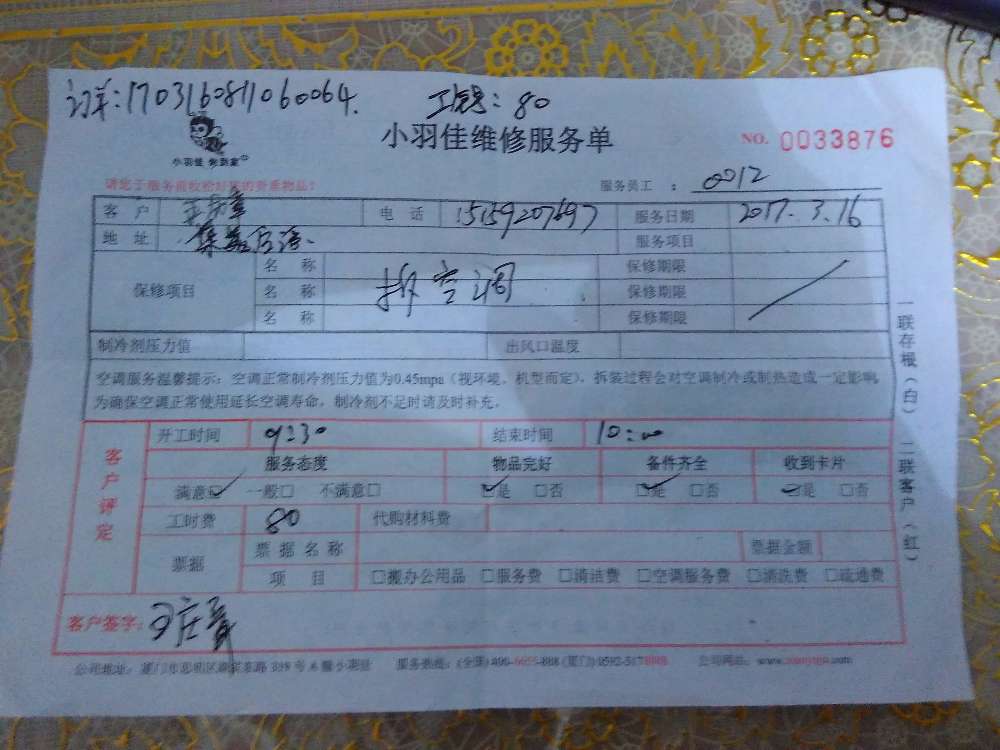 订单:1703160811060064. 工号:80
小羽佳维修服务单
NO. 0033876
小羽佳
服务员工 : 0012
客 户 电 话 15159207697 服务日期 2017.3.16
地 址 服务项目
保修项目
名 称 拆空调 保修期限
名 称 保修期限
名 称 保修期限
制冷剂压力值 出风口温度
空调服务温馨提示:空调正常制冷剂压力值为0.45mpa(视环境、机型而定),拆装过程会对空调制冷或制热造成一定影响,
为确保空调正常使用延长空调寿命,制冷剂不足时请及时补充。
客户评定
开工时间 9:30 结束时间 10:00
服务态度 物品完好 备件齐全 收到卡片
满意☑ 一般□ 不满意□ ☑是 □否 ☑是 □否 ☑是 □否
工时费 80 代购材料费
票据 票据名称 票据金额
项 目 □搬办公用品 □服务费 □清洁费 □空调服务费 □清洗费 □疏通费
客户签字:
一联存根(白) 二联客户(红)
公司地址: 服务热线: 公司网址: